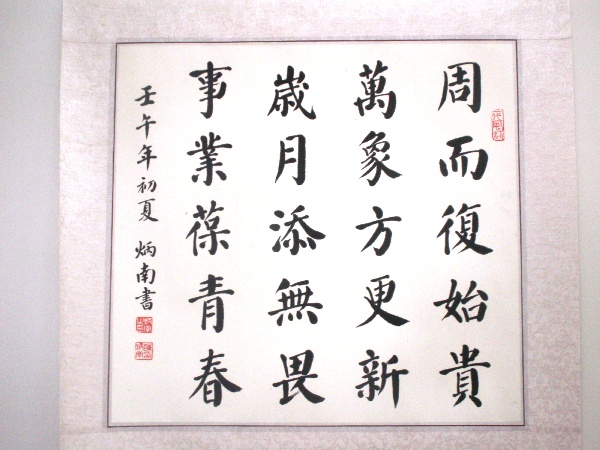 周而復始貴
萬象方更新
歲月添無畏
事業葆青春
壬午年初夏 炳南書